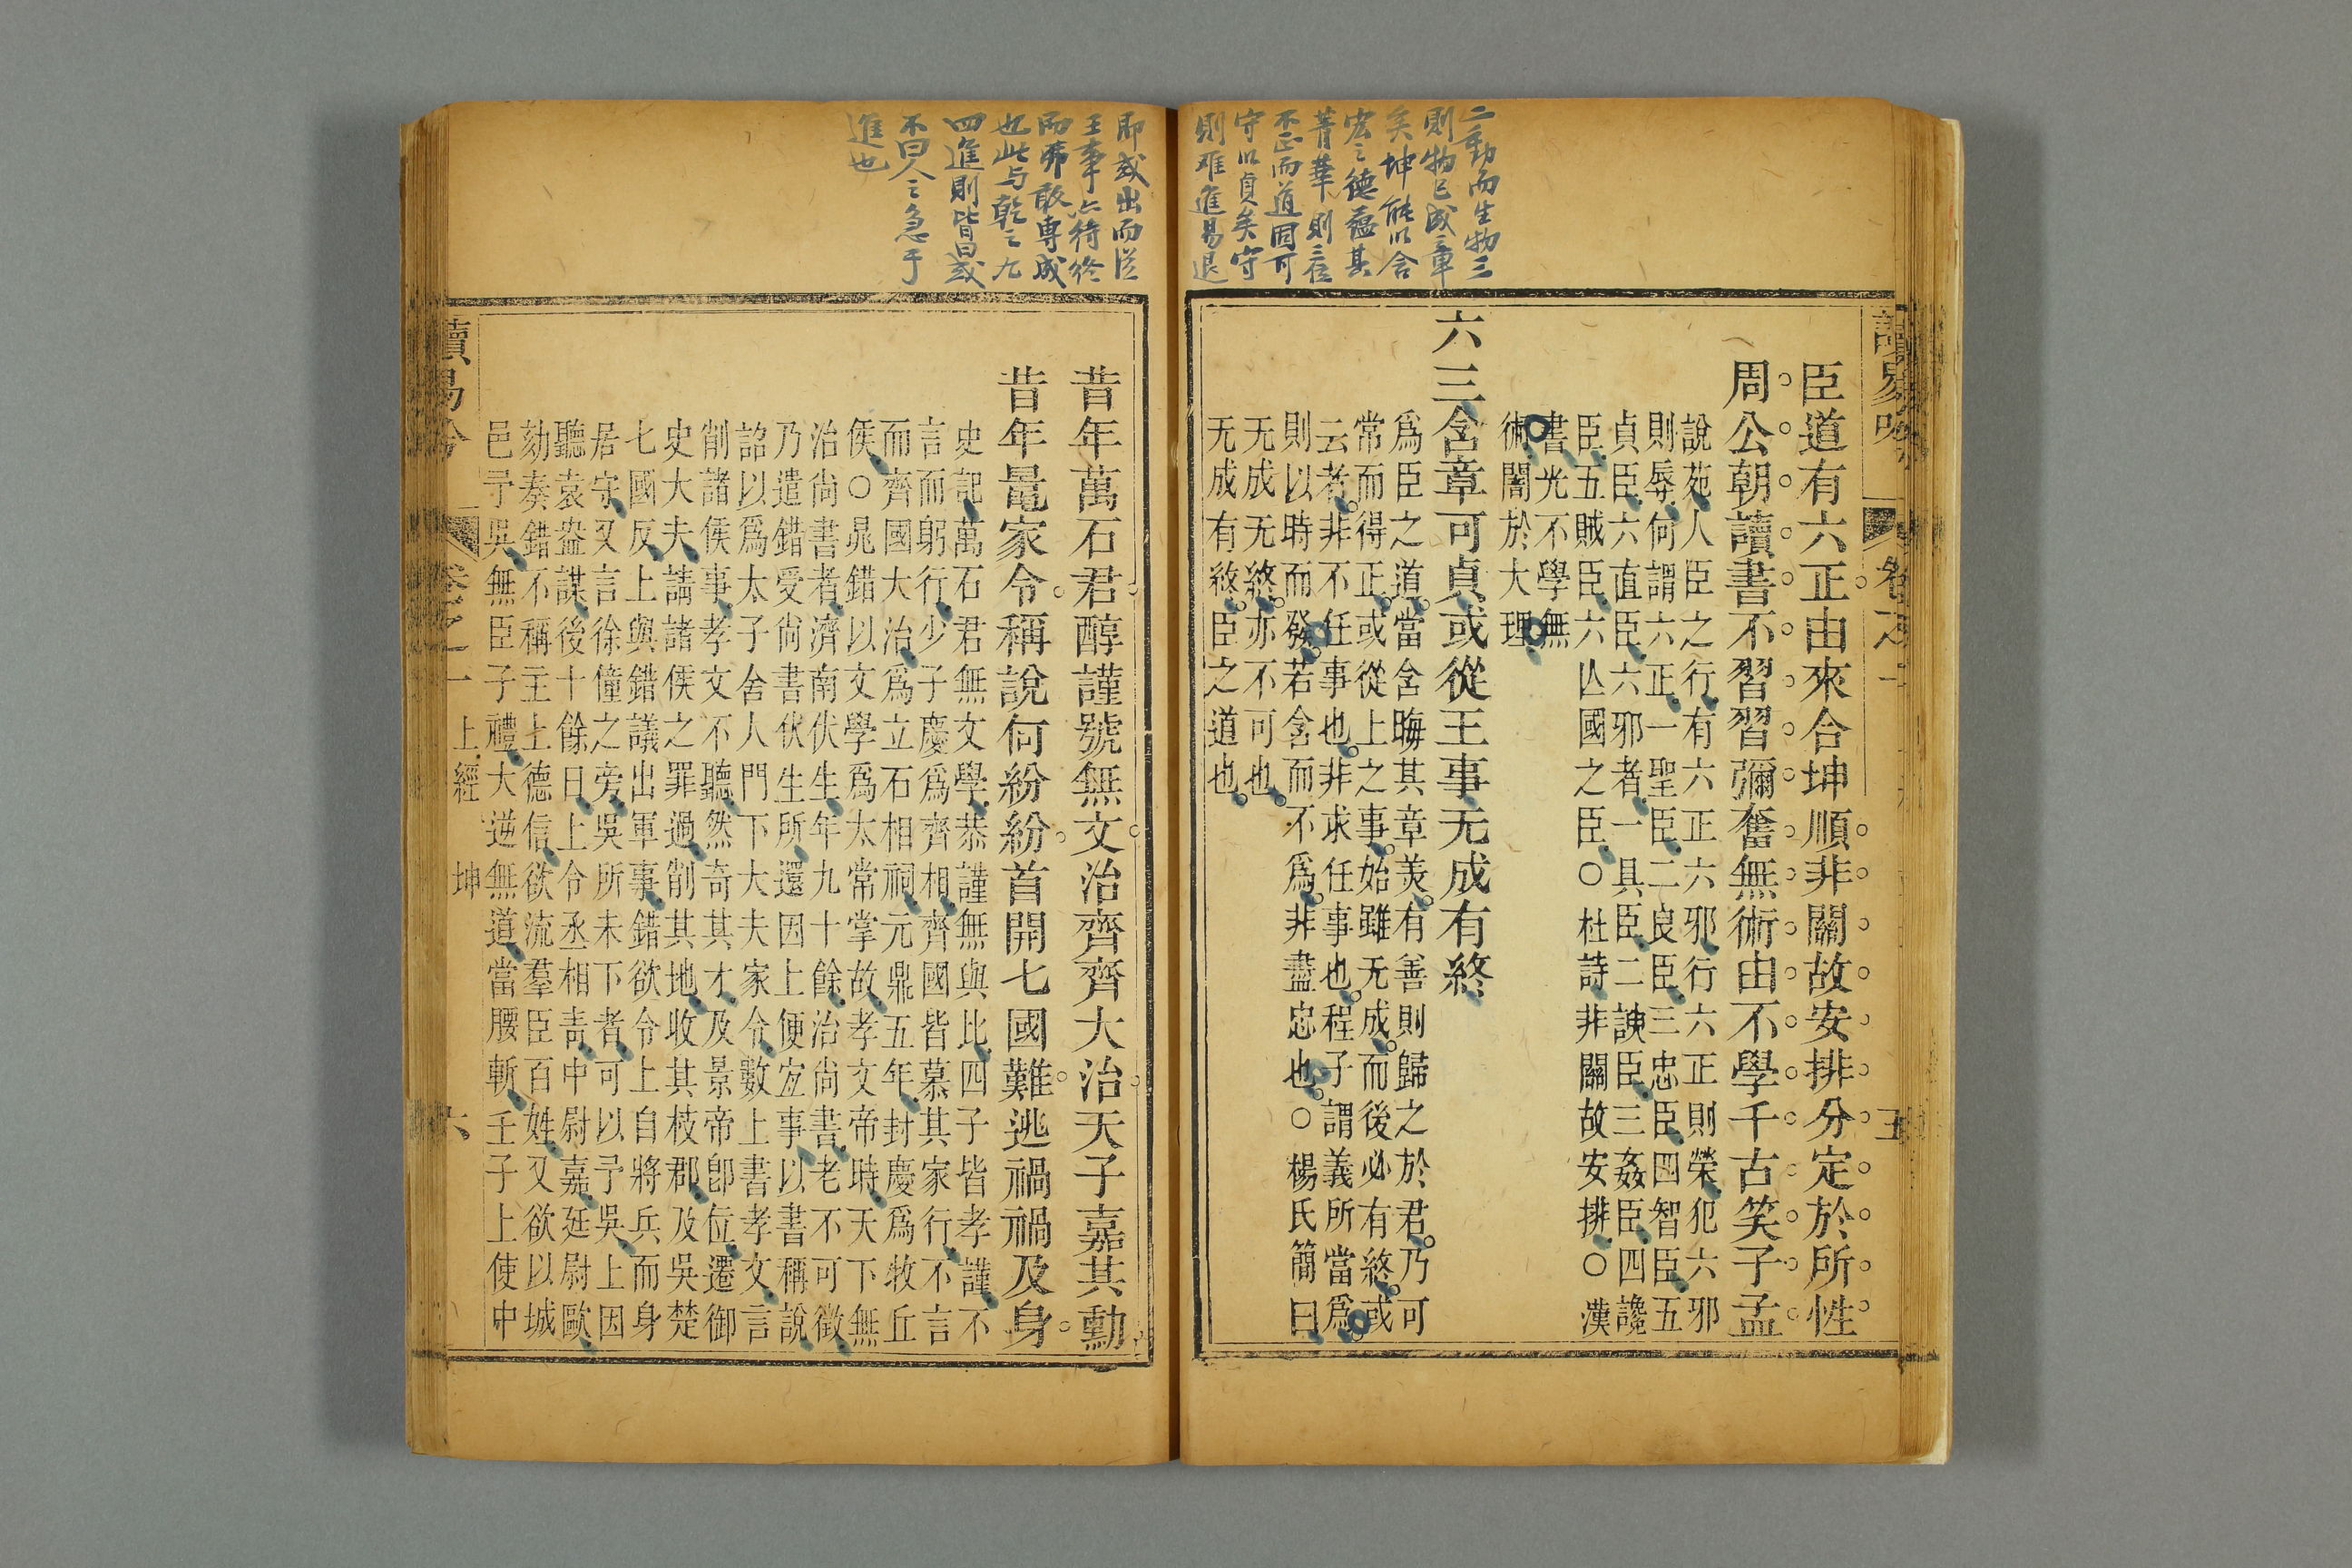 二動而生物三
則物已成章
矣坤能以含
宏之德蘊其
菁華則三雖
不正而道固可
守以貞矣守
則难進易退
即或出而從
王事必待終
而弗敢專成
也此与乾之九
四進則皆曰或
不曰人之急于
進也
讀易吟
卷之一
五
臣道有六正由來合坤順非關故安排分定於所性
周公朝讀書不習習彌奮無術由不學千古笑子孟
說苑人臣之行有六正六邪行六正則榮犯六邪
則辱何謂六正一聖臣二良臣三忠臣四智臣五
貞臣六直臣六邪者一具臣二諛臣三姦臣四讒
臣五賊臣六亾國之臣○杜詩非關故安排○漢
書光不學無
術闇於大理
六三含章可貞或從王事无成有終
爲臣之道當含晦其章美有善則歸之於君乃可
常而得正或從上之事始雖无成而後必有終或
云者非不任事也非求任事也程子謂義所當爲
則以時而發若含而不爲非盡忠也○楊氏簡曰
无成无終亦不可也
无成有終臣之道也
昔年萬石君醇謹號無文治齊齊大治天子嘉其勳
昔年鼂家令稱說何紛紛首開七國難逃禍禍及身
史記萬石君無文學恭謹無與比四子皆孝謹不
言而躬行少子慶爲齊相齊國皆慕其家行不言
而齊國大治爲立石相祠元鼎五年封慶爲牧丘
侯○晁錯以文學爲太常掌故孝文帝時天下無
治尚書者濟南伏生年九十餘治尚書老不可徵
乃遣錯受尚書伏生所還因上便宜事以書稱說
詔以爲太子舍人門下大夫家令數上書孝文言
削諸侯事孝文不聽然奇其才及景帝卽位遷御
史大夫請諸侯之罪過削其地收其枝郡及吳楚
七國反上與錯議出軍事錯欲令上自將兵而身
居守又言徐僮之旁吳所未下者可以予吳上因
聽袁盎謀後十餘日上令丞相青中尉嘉廷尉歐
劾奏錯不稱主上德信欲流羣臣百姓又欲以城
邑予吳無臣子禮大逆無道當腰斬壬子上使中
讀易吟
卷之一
上經
坤
六